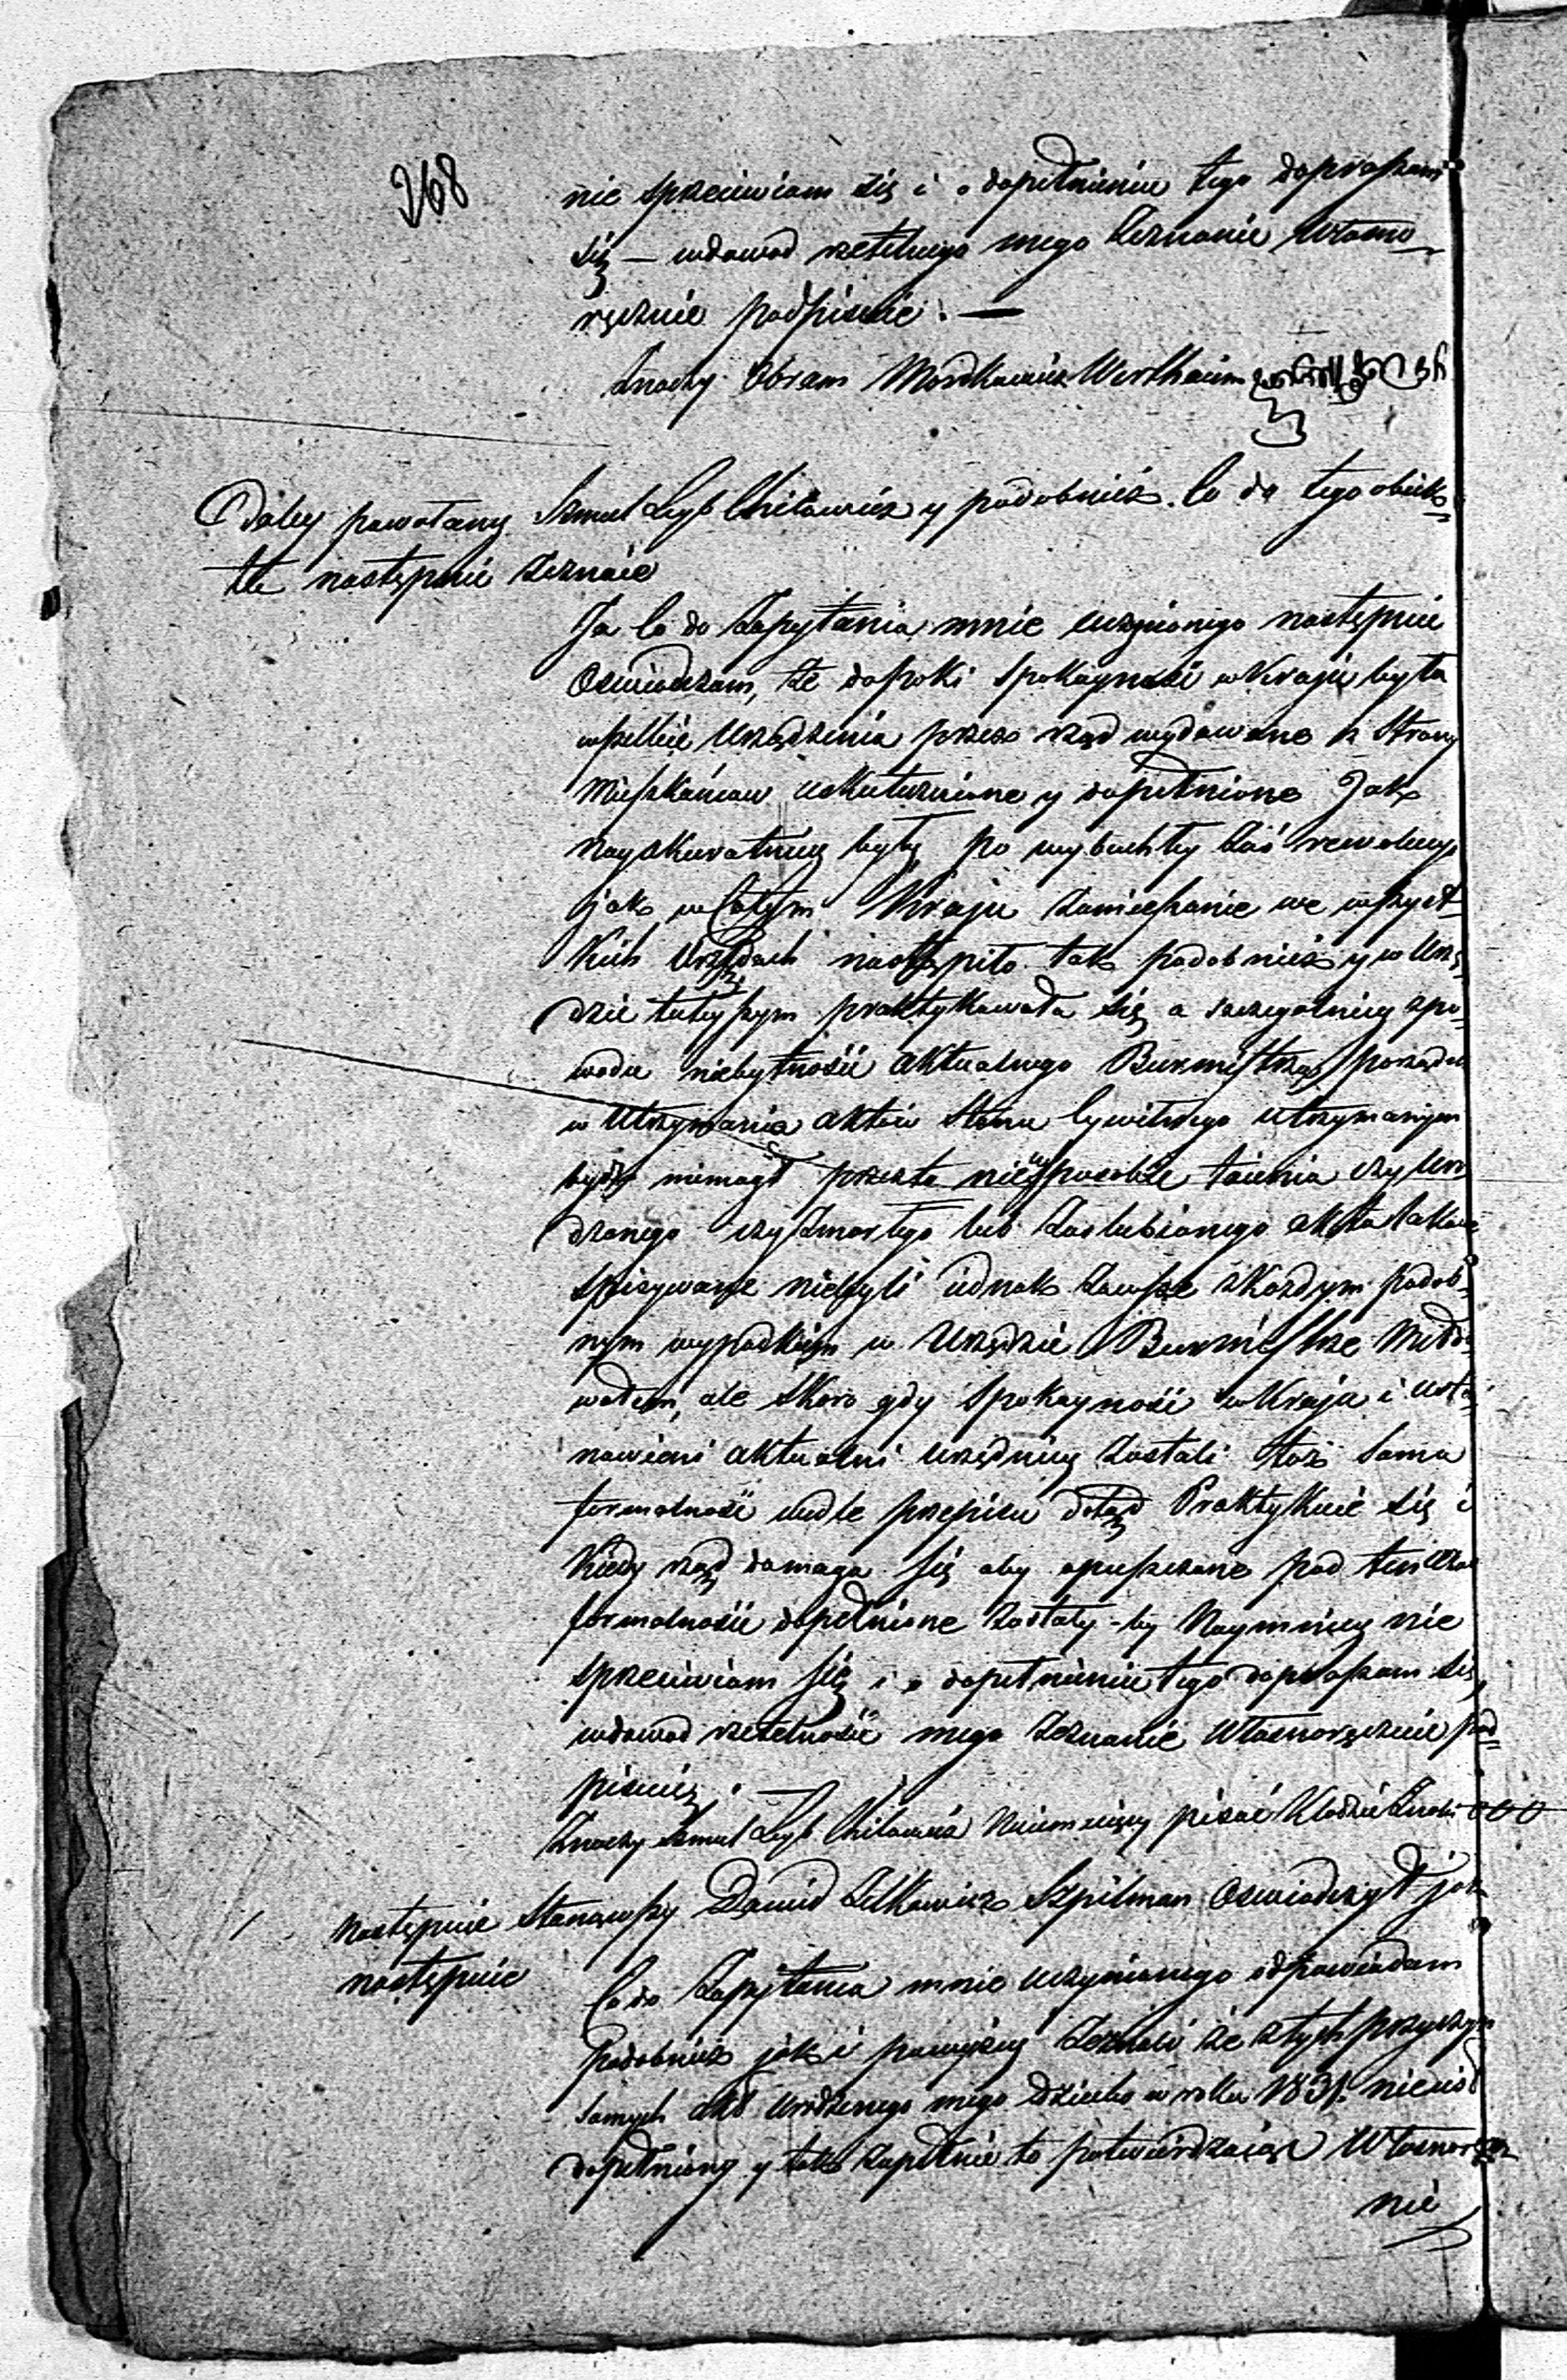 268
nie sprzeciwiam się i o dopełnienie tego dopraszam
się — wdowod rzetelnego mego Zeznanie Własno
ręcznie podpisuie. —
Znaczy Abram Mordkowicz Wertheim
Daley powołany Szmul Leyb Chilowicz y podobniesz Co do tego obiek=
tu następnie Zeznaie
Ja Co do Zapytania mnie uczynionego następnie
Oswiadczam, że dopoki Spokoynosci w Kraju była
wszelkie Urządzenia przez rząd wydawane z Strony
Mieszkancow uskutecznione y dopełnione Jak
Nayakuratniey były po wybuchłey zaś rewolucyi
jak w Całym Kraju Zamieszanie we wszyst=
kich Urzędach nastąpiło tak podobniesz y w Urzę=
dzie tuteyszym praktykowała się a szczegolniey z po=
wodu niebytnosci aktualnego Burmistrza porządek
w Utrzymania aktow Stanu Cywilnego utrzymanym
bydz niemogł przeto nie w sposobie taienia czy Uro
dzonego czy Zmarłego lub Zaslubionego akta takowe
Spisywane niebyli iednak Zawsze z Kazdym podob=
nym wypadkiem w Urzędzie Burmistrze Meldo=
wałem, ale skoro gdy Spokoynosci w Kraju i usta=
nowieni aktualni urzędnicy Zostali taż sama
formalnosci wedle przepisu dotąd Praktykuie się i
Kiedy rząd domaga się aby opuszczone pod ten czas
formalnoscie dopełnione Zostały - by Naymniey nie
sprzeciwiam się i o dopełnienie tego dopraszam się,
wdowod rzetelnosci mego Zeznanie Własnoręcznie pod=
pisuię. —
Znaczy Szmul Leyb Chilowicz Nieumieiący pisać Kładzie Znaki OOO
Następnie Stanąwszy Dawid Lelkowicz Szpilman Oswiadczył jak
następnie
Co do Zapytania mnie uczynionego odpowiadam
Podobniesz jak i powyżey Zeznali że z tych przyczyn
Samych akt Urodzonego mego Dziecka w roku 1831. nie iest
dopełniony y tak zupełnie to potwierdzaiąc Własnoręcz
nie